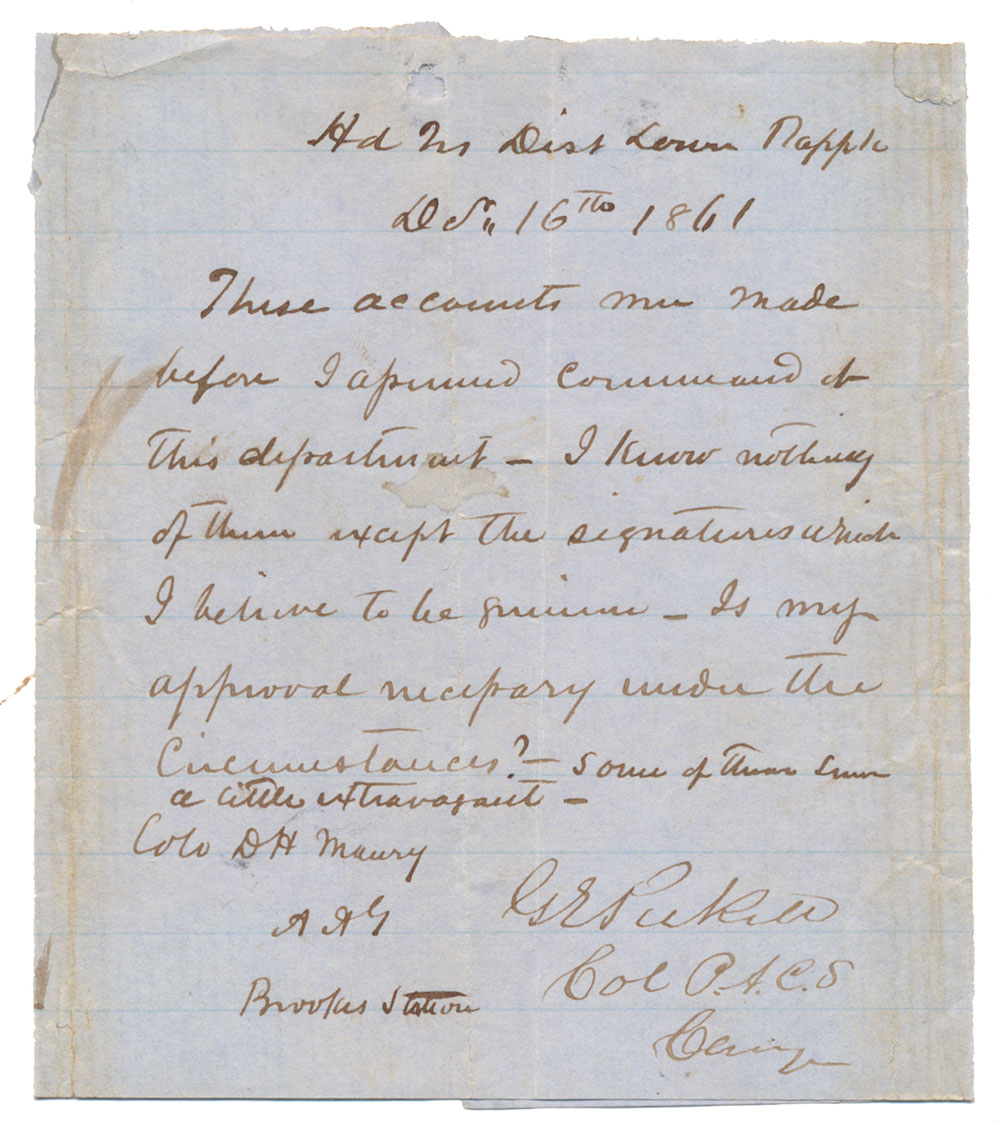 Hd Qrs Dist Lower Rappk
Decr 16th 1861
These accounts were made
before I assumed command of
this department – I know nothing
of them except the signatures which
I believe to be genuine – Is my
approval necessary under the
Circumstances? – Some of them seem
a little extravagant –
Colo D H Maury
A A G
Brookes Station
G E Pickett
Col P.A.C.S
Comg